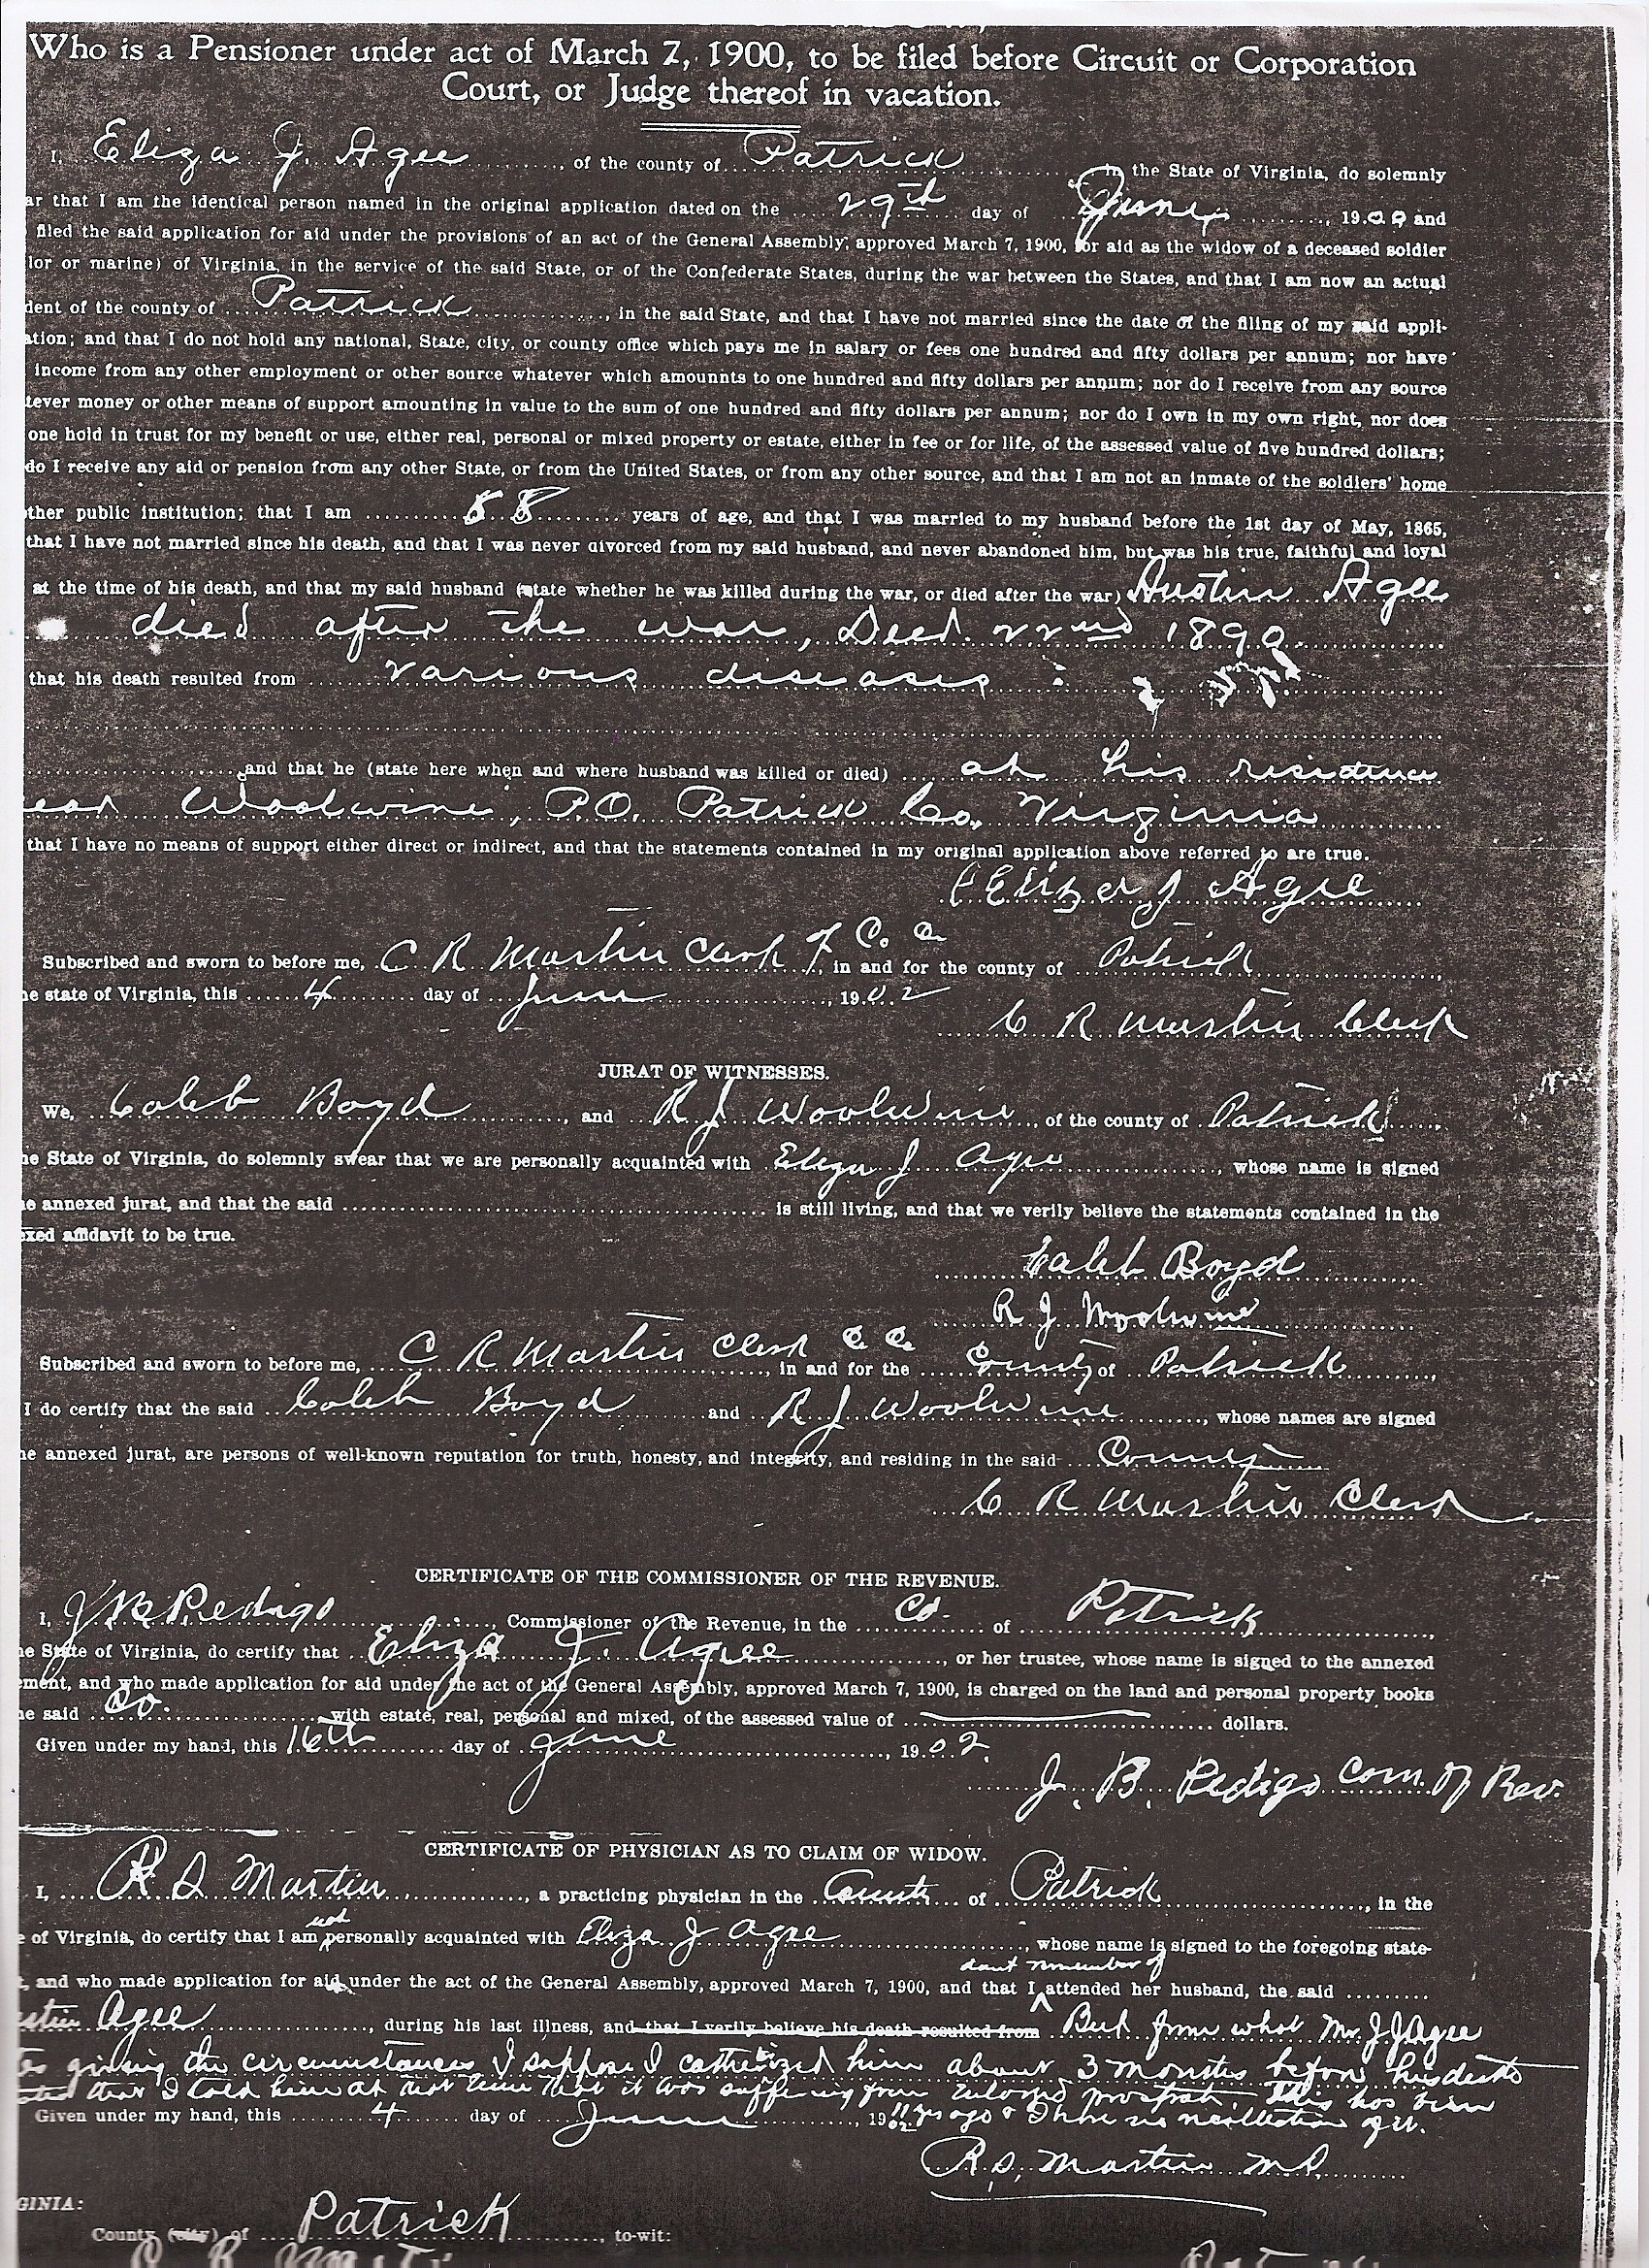 Who is a Pensioner under act of March 7, 1900, to be filed before Circuit or Corporation
Court, or Judge thereof in vacation.
I, Eliza J. Agee, of the county of Patrick in the State of Virginia, do solemnly
ar that I am the identical person named in the original application dated on the 29th day of June, 1900 and
filed the said application for aid under the provisions of an act of the General Assembly, approved March 7, 1900, for aid as the widow of a deceased soldier
lor or marine) of Virginia, in the service of the said State, or of the Confederate States, during the war between the States, and that I am now an actual
dent of the county of Patrick, in the said State, and that I have not married since the date of the filing of my said appli-
ation; and that I do not hold any national, State, city, or county office which pays me in salary or fees one hundred and fifty dollars per annum; nor have
income from any other employment or other source whatever which amounnts to one hundred and fifty dollars per annum; nor do I receive from any source
tever money or other means of support amounting in value to the sum of one hundred and fifty dollars per annum; nor do I own in my own right, nor does
one hold in trust for my benefit or use, either real, personal or mixed property or estate, either in fee or for life, of the assessed value of five hundred dollars;
do I receive any aid or pension from any other State, or from the United States, or from any other source, and that I am not an inmate of the soldiers' home
ther public institution; that I am 58 years of age, and that I was married to my husband before the 1st day of May, 1865,
that I have not married since his death, and that I was never divorced from my said husband, and never abandoned him, but was his true, faithful and loyal
at the time of his death, and that my said husband (state whether he was killed during the war, or died after the war) Austin Agee
died after the war, Decd. 22nd 1890.
that his death resulted from various diseases
and that he (state here when and where husband was killed or died) at his residence
ear Woolwine, P.O. Patrick Co, Virginia
that I have no means of support either direct or indirect, and that the statements contained in my original application above referred to are true.
Eliza J Agee
Subscribed and sworn to before me, C R Martin Clerk of Co. Ct., in and for the county of Patrick,
he state of Virginia, this 4 day of June, 1902
C R Martin Clerk
JURAT OF WITNESSES.
We, Caleb Boyd, and R J Woolwine, of the county of Patrick,
he State of Virginia, do solemnly swear that we are personally acquainted with Eliza J Agee, whose name is signed
he annexed jurat, and that the said is still living, and that we verily believe the statements contained in the
exed affidavit to be true.
Caleb Boyd
R J Woolwine
Subscribed and sworn to before me, C R Martin Clerk C C, in and for the County of Patrick,
I do certify that the said Caleb Boyd and R J Woolwine, whose names are signed
he annexed jurat, are persons of well-known reputation for truth, honesty, and integrity, and residing in the said County
C R Martin Clerk
CERTIFICATE OF THE COMMISSIONER OF THE REVENUE.
I, J B Pedigo, Commissioner of the Revenue, in the Co. of Patrick,
he State of Virginia, do certify that Eliza J. Agee, or her trustee, whose name is signed to the annexed
ement, and who made application for aid under the act of the General Assembly, approved March 7, 1900, is charged on the land and personal property books
he said Co. with estate, real, personal and mixed, of the assessed value of dollars.
Given under my hand, this 16th day of June, 1902.
J. B. Pedigo Com. of Rev.
CERTIFICATE OF PHYSICIAN AS TO CLAIM OF WIDOW.
I, R S Martin, a practicing physician in the County of Patrick, in the
e of Virginia, do certify that I am not personally acquainted with Eliza J Agee, whose name is signed to the foregoing state-
, and who made application for aid under the act of the General Assembly, approved March 7, 1900, and that I dont remember of attended her husband, the said
stin Agee, during his last illness, and that I verily believe his death resulted from But from what Mr J J Agee
giving the circumstances I suppose I catheterized him about 3 months before his death
that I told him at that time that it was suffering from Enlarged prostrate. This has been
Given under my hand, this 4 day of June, 1902 11 yrs ago & I have no recollection of it.
R. S. Martin M.D.
GINIA:
County (city) of Patrick, to-wit: